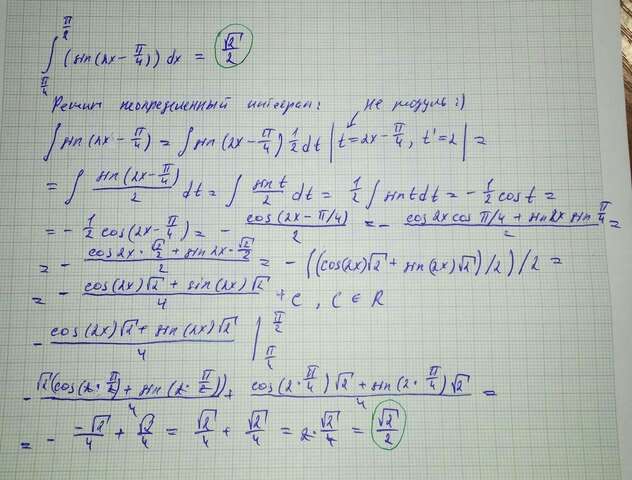 ∫_{π/4}^{π/2} (sin(2x - π/4)) dx = √2/2
Решим неопределенный интеграл: не модуль :)
∫ sin(2x - π/4) = ∫ sin(2x - π/4) 1/2 dt | t = 2x - π/4, t' = 2 | =
= ∫ sin(2x - π/4)/2 dt = ∫ sin t/2 dt = 1/2 ∫ sin t dt = - 1/2 cos t =
= - 1/2 cos(2x - π/4) = - cos(2x - π/4)/2 = - (cos 2x cos π/4 + sin 2x sin π/4)/2 =
= - (cos 2x · √2/2 + sin 2x · √2/2)/2 = - ((cos(2x)√2 + sin(2x)√2)/2)/2 =
= - (cos(2x)√2 + sin(2x)√2)/4 + C, C ∈ R
- (cos(2x)√2 + sin(2x)√2)/4 |_{π/4}^{π/2}
- √2(cos(2·π/2) + sin(2·π/2))/4 + (cos(2·π/4)√2 + sin(2·π/4)√2)/4 =
= - -√2/4 + √2/4 = √2/4 + √2/4 = 2·√2/4 = √2/2